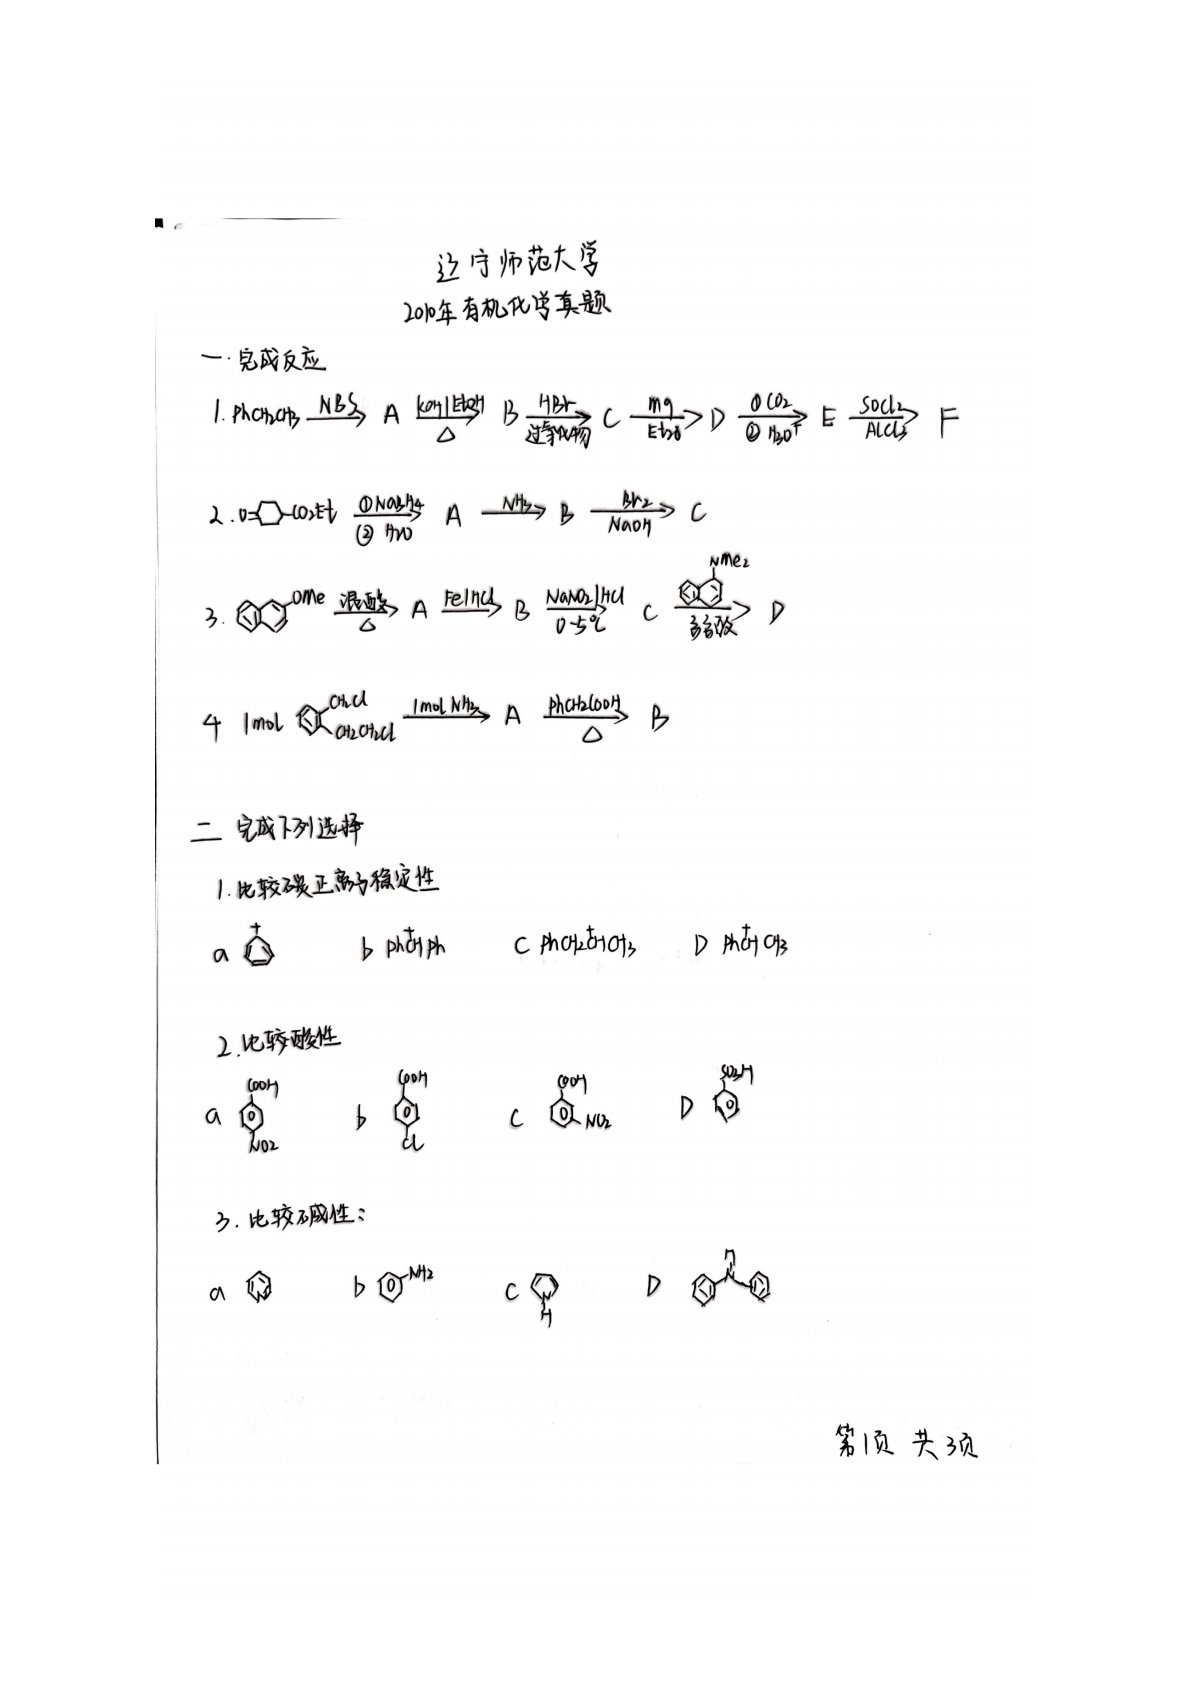 辽宁师范大学
2010年有机化学真题
一.完成反应
1. PhCH2CH3 NBS A KOH/EtOH △ B HBr 过氧化物 C Mg Et2O D ①CO2 ②H3O+ E SOCl2 AlCl3 F
2. O= CO2Et ①NaBH4 ②H2O A NH3 B Br2 NaOH C
3. OMe 混酸 △ A Fe/HCl B NaNO2/HCl 0-5℃ C NMe2 弱酸 D
4 1mol CH2Cl CH2CH2Cl 1mol NH3 A PhCH2COOH △ B
二 完成下列选择
1.比较碳正离子稳定性
a + b PhC+HPh C PhCH2C+HCH3 D PhC+HCH3
2.比较酸性
a COOH NO2 b COOH Cl C COOH NO2 D SO3H
3.比较碱性:
a N b NH2 C N H D H N
第1页 共3页